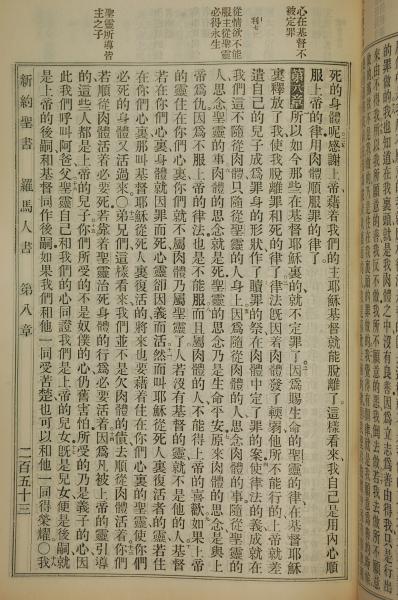 心在基督不
被定罪
利七
從情欲不能
服主從聖靈
必得永生
聖靈所導皆
主之子
的罪做的我也知道在我裏頭就是我肉體之中沒有良善因爲立志爲善由得我只是行出
來由不得我
死的身體呢感謝上帝藉着我們的主耶穌基督就能脫離了這樣看來我自己是用內心順
服上帝的律用肉體順服罪的律了
第八章所以如今那些在基督耶穌裏的就不定罪了因爲賜生命的聖靈的律在基督耶穌
裏釋放了我使我脫離罪和死的律了律法旣因着肉體發了輭弱他所不能行的上帝就差
遣自己的兒子成爲罪身的形狀作了贖罪的祭在肉體中定了罪的案使律法的義成就在
我們這不隨從肉體只隨從聖靈的人身上因隨從肉體的人思念肉體的事隨從聖靈的
人思念聖靈的事肉體的思念就是死聖靈的思念乃是生命平安原來肉體的思念是與上
帝爲仇因爲不服上帝的律法也是不能服而且屬肉體的人不能得上帝的喜歡如果上帝
的靈住在你們心裏你們就不屬肉體乃屬聖靈了人若沒有基督的靈就不是他的人基督
若在你們心裏身體就因罪而死心靈卻因義而活然而叫耶穌從死人裏復活者的靈若住
在你們心裏那叫基督耶穌從死人裏復活的將來也要藉着住在你們心裏的靈使你們
必死的身體又活過來○弟兄們這樣看來我們並不是欠肉體的債去順從肉體活着你們
若順從肉體活着必要死若靠着聖靈治死身體的行爲必要活着因爲凡被上帝的靈引導
的這些人都是上帝的兒子你們所受的不是奴僕的心仍舊害怕所受的乃是義子的心因
此我們呼叫阿爸父聖靈自己和我們的心同證我們是上帝的兒女旣是兒女便是後嗣就
是上帝的後嗣和基督同作後嗣如果我們和他一同受苦楚也可以和他一同得榮耀○我
新約聖書 羅馬人書 第八章 二百五十三